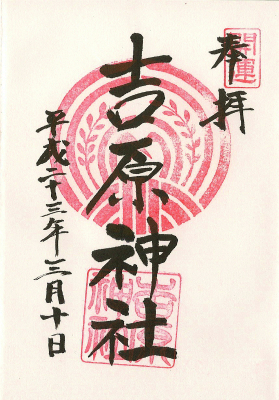 開運
奉拝
吉原神社
吉原神社
平成二十三年三月十日